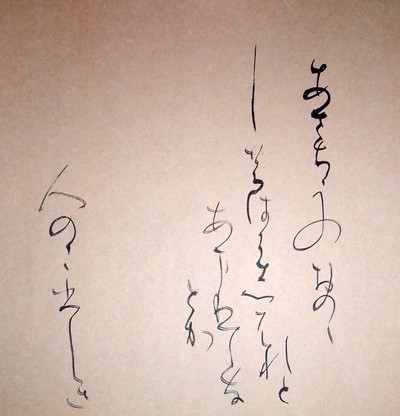 あさちふのをのゝ
しのはらしのふれと
あまりてな
とか
人のこひしき